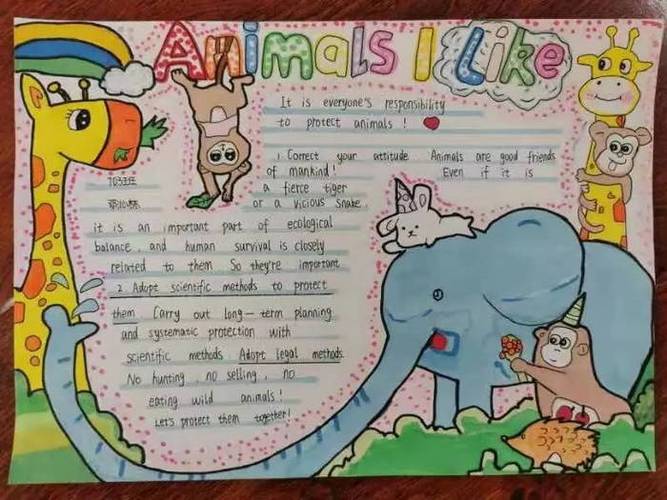 Animals I Like
It is everyone's responsibility
to protect animals !
1. Correct your attitude Animals are good friends
of mankind! Even if it is
a fierce tiger
or a vicious snake,
it is an important part of ecological
balance, and human survival is closely
related to them So they're important
2. Adopt scientific methods to protect
them Carry out long-term planning
and systematic protection with
scientific methods. Adopt legal methods.
No hunting, no selling, no
eating wild animals!
Let's protect them together!